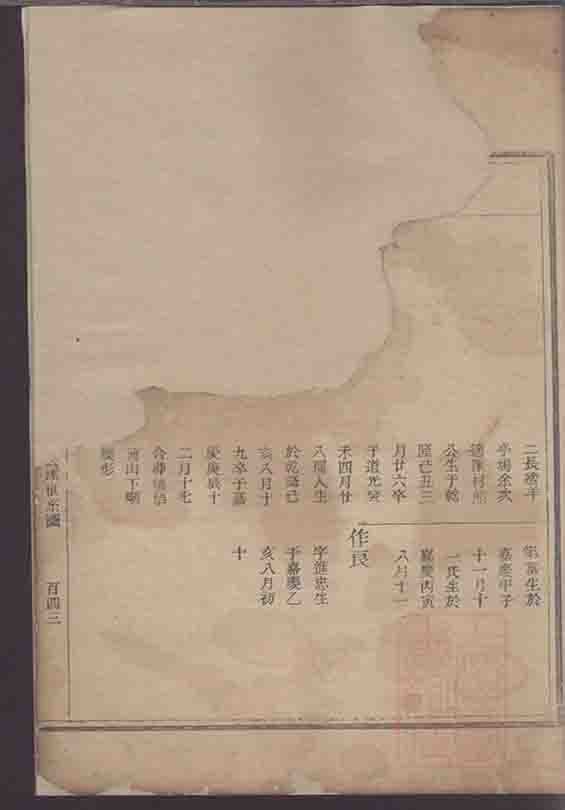 二長適年
亭塲余次
適陳村熊
公生于乾
隆己丑三
月廿六卒
于道光癸
未四月廿
八 人生
於乾隆己
亥八月十
九卒于嘉
慶庚辰十
二月十七
合葬
山下
形
生於
嘉慶甲子
十一月十
一氏生於
嘉慶丙寅
八月十一
作良
字進忠生
于嘉慶乙
亥八月初
十
百四三